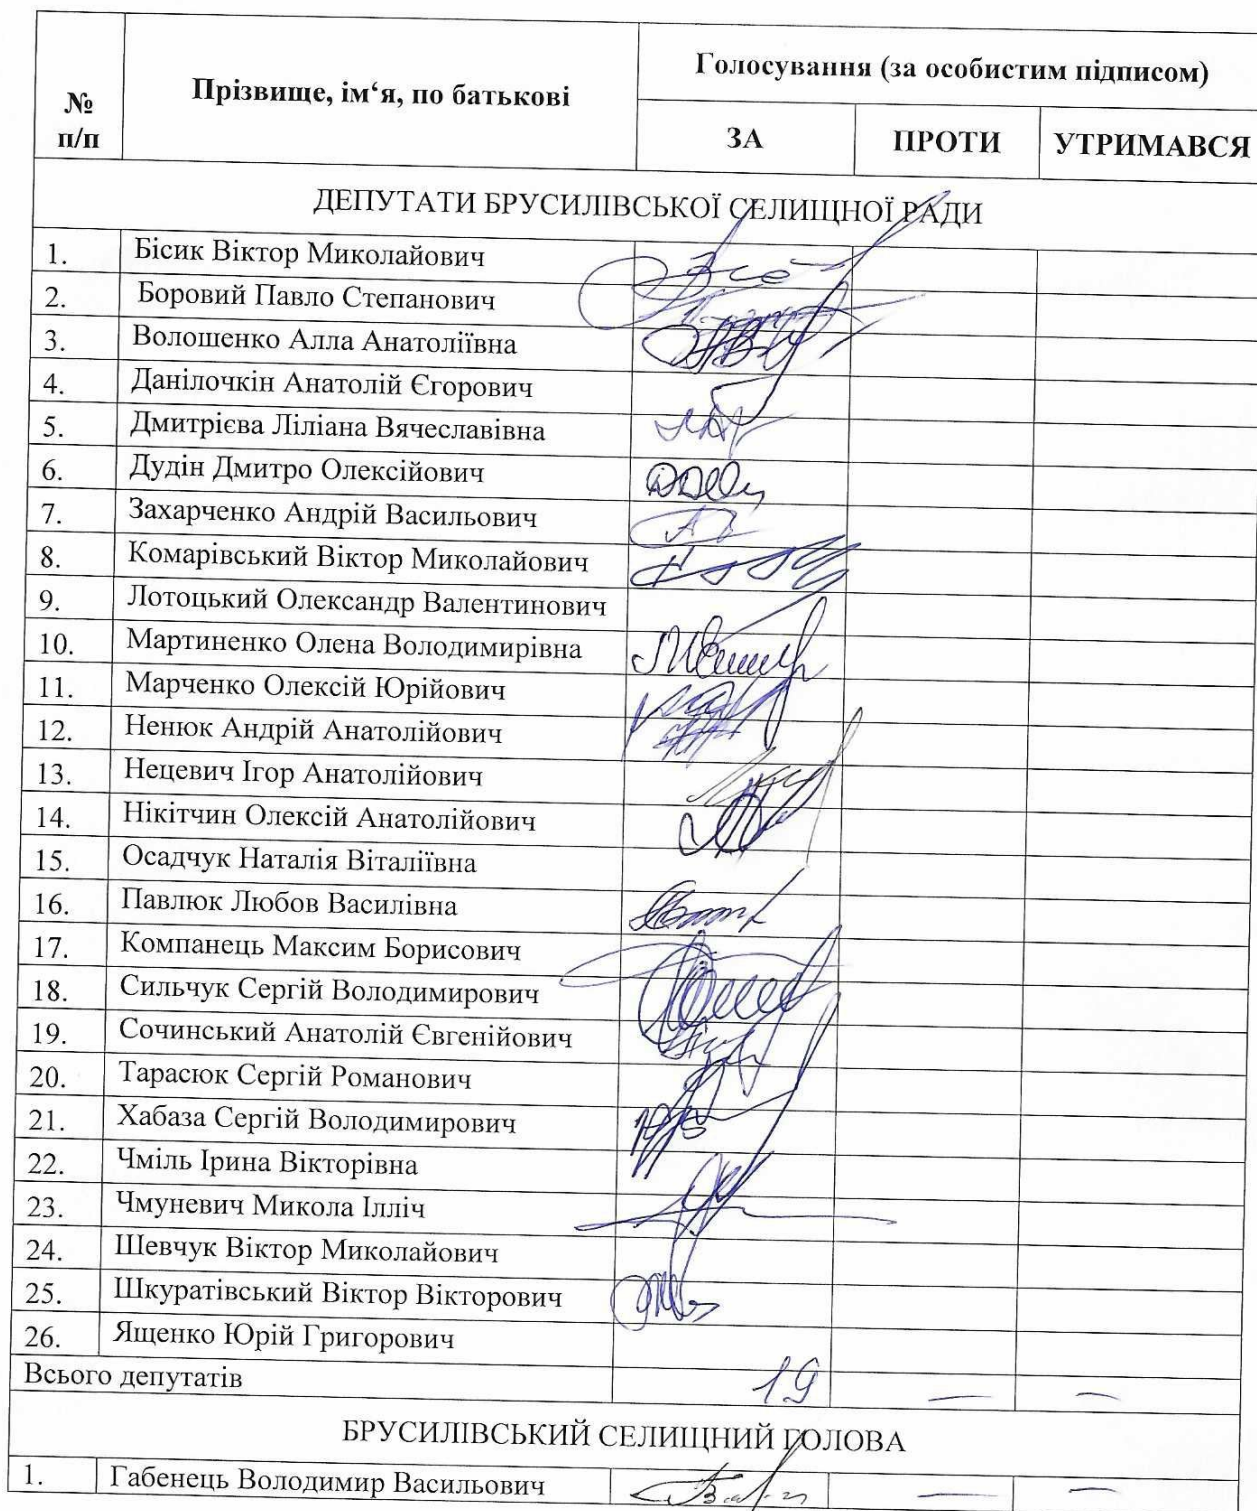 № п/п
Прізвище, ім‘я, по батькові
Голосування (за особистим підписом)
ЗА
ПРОТИ
УТРИМАВСЯ
ДЕПУТАТИ БРУСИЛІВСЬКОЇ СЕЛИЩНОЇ РАДИ
1. Бісик Віктор Миколайович
2. Боровий Павло Степанович
3. Волошенко Алла Анатоліївна
4. Данілочкін Анатолій Єгорович
5. Дмитрієва Ліліана Вячеславівна
6. Дудін Дмитро Олексійович
7. Захарченко Андрій Васильович
8. Комарівський Віктор Миколайович
9. Лотоцький Олександр Валентинович
10. Мартиненко Олена Володимирівна
11. Марченко Олексій Юрійович
12. Ненюк Андрій Анатолійович
13. Нецевич Ігор Анатолійович
14. Нікітчин Олексій Анатолійович
15. Осадчук Наталія Віталіївна
16. Павлюк Любов Василівна
17. Компанець Максим Борисович
18. Сильчук Сергій Володимирович
19. Сочинський Анатолій Євгенійович
20. Тарасюк Сергій Романович
21. Хабаза Сергій Володимирович
22. Чміль Ірина Вікторівна
23. Чмуневич Микола Ілліч
24. Шевчук Віктор Миколайович
25. Шкуратівський Віктор Вікторович
26. Ященко Юрій Григорович
Всього депутатів 19 — —
БРУСИЛІВСЬКИЙ СЕЛИЩНИЙ ГОЛОВА
1. Габенець Володимир Васильович — —